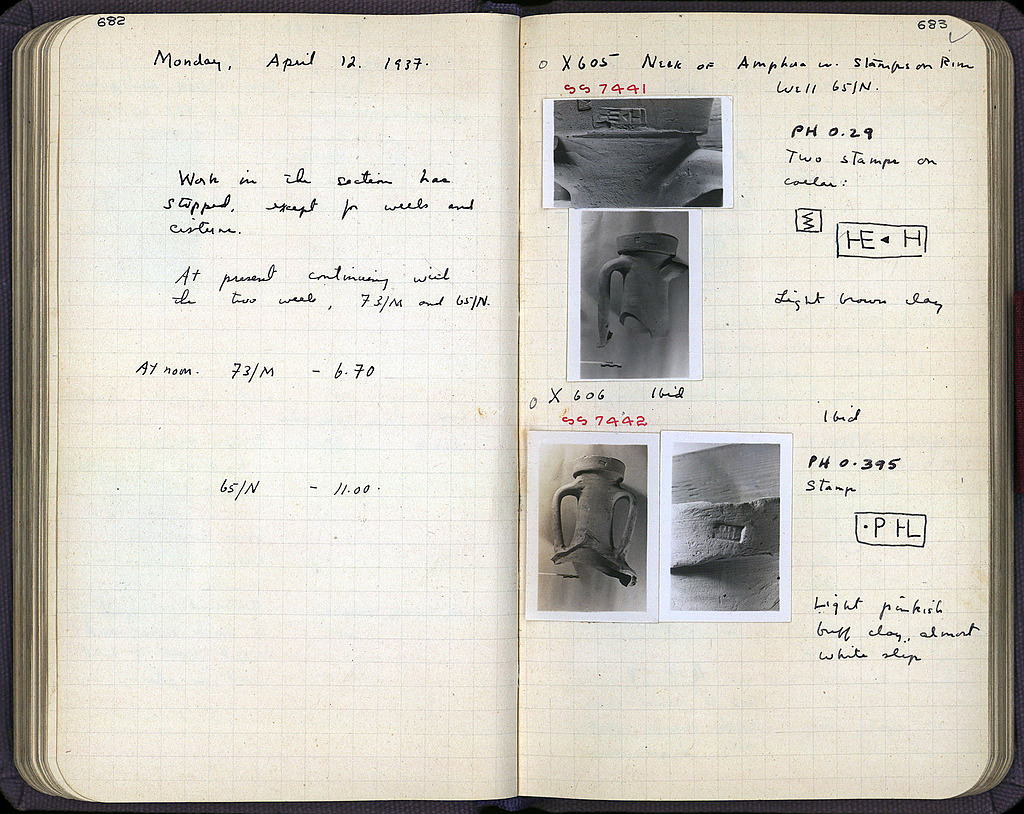 682
Monday, April 12. 1937.
Work in the section has
stopped, except for wells and
cisterns.
At present continuing with
the two wells, 73/M and 65/N.
At noon. 73/M - 6.70
65/N - 11.00.
683
X 605 Neck of Amphora w. Stamps on Rim
SS 7441
Well 65/N.
PH 0.29
Two stamps on
collar:
HE◂H
Light brown clay
X 606 Ibid
SS 7442
Ibid
PH 0.395
Stamp
·PHL
Light pinkish
buff clay, almost
white slip